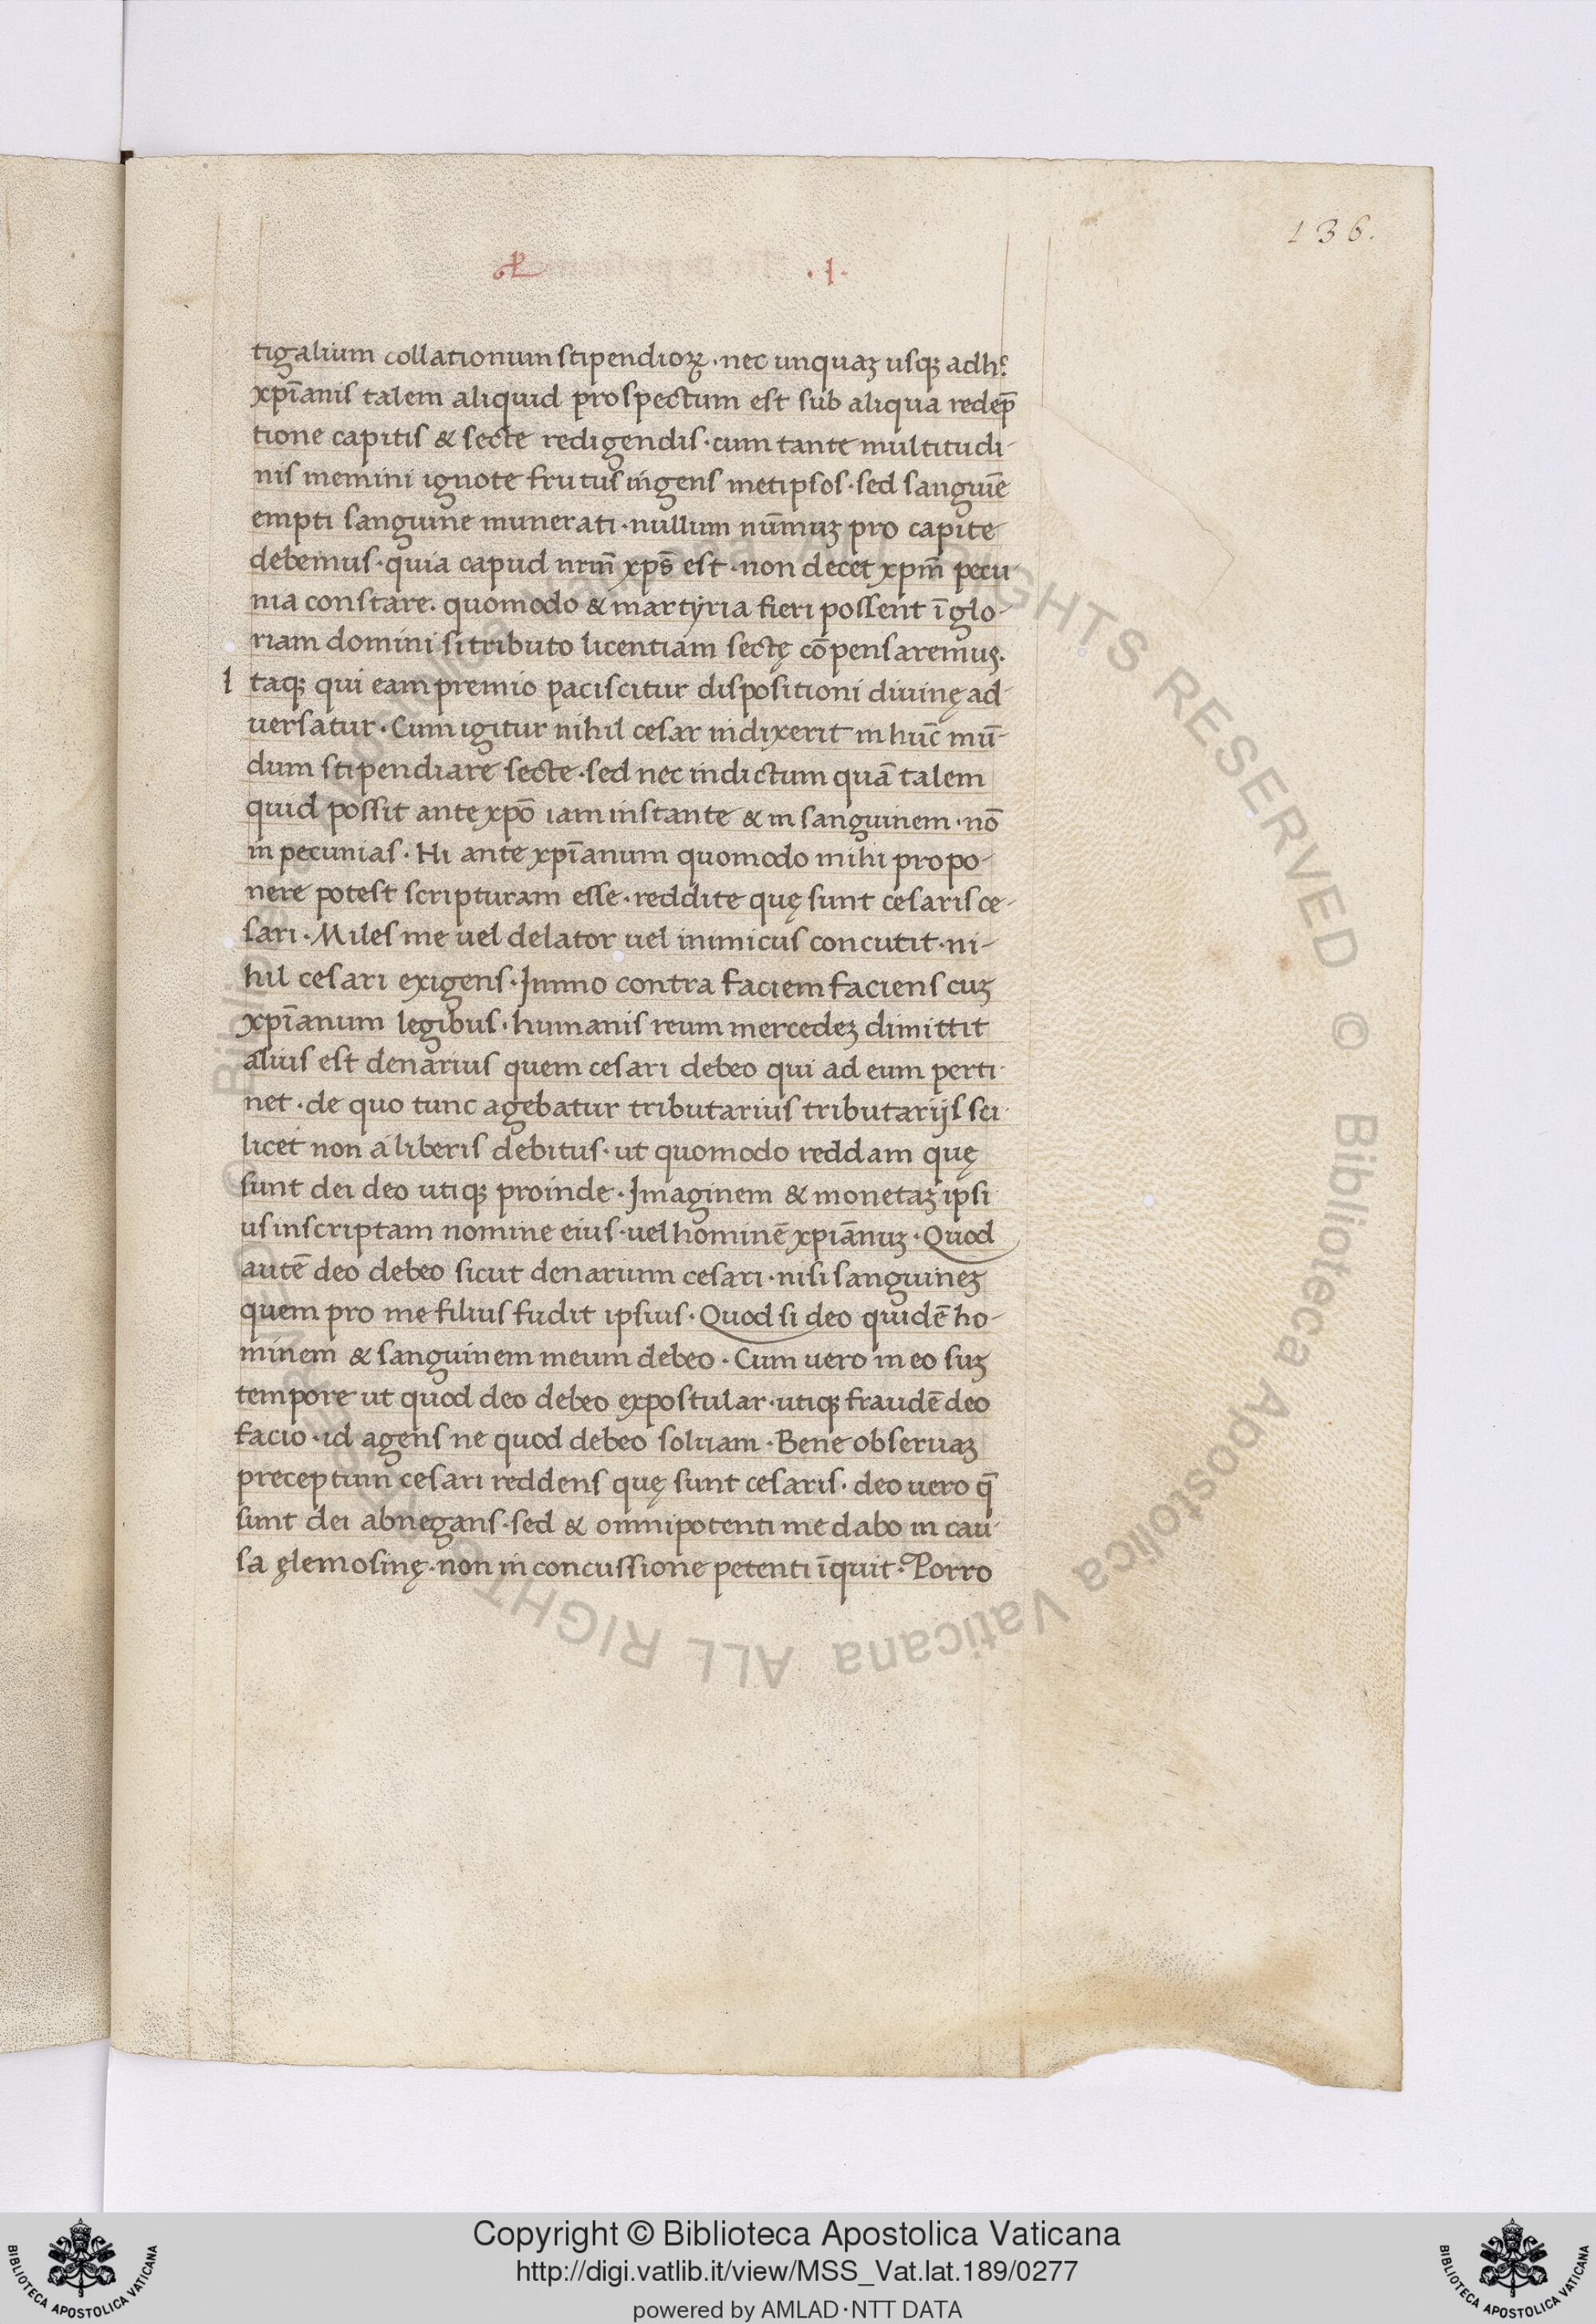 136.
.I.
tigalium collationum stipendioꝝ · nec unquaꝫ usqꝫ adhᶜ
xp̄ianis talem aliquid prospectum est sub aliqua redep̄
tione capitis & secte redigendis · cum tante multitudi-
nis memini ignote fructus ingens metipsos · sed sanguīe
empti sanguine munerati · nullum nūmuꝫ pro capite
debemus · quia capud nrm̄ xps̄ est · non decet xpm̄ pecu
nia constare · quomodo & martyria fieri possent ī glo-
riam domini si tributo licentiam sectę cōpensaremus.
I taqꝫ qui eam premio paciscitur dispositioni diuinę ad-
uersatur · Cum igitur nihil cesar indixerit in hūc mū-
dum stipendiare secte · sed nec indictum quā talem
quid possit ante xpō iam instante & in sanguinem · nō
in pecunias · Hi ante xp̄ianum quomodo mihi propo-
nere potest scripturam esse · reddite quę sunt cesaris ce-
sari · Miles me uel delator uel inimicus concutit · ni-
hil cesari exigens · Immo contra faciem faciens cuꝫ
xp̄ianum legibus · humanis reum mercedeꝫ dimittit
alius est denarius quem cesari debeo qui ad eum perti-
net · de quo tunc agebatur tributarius tributarijs sci-
licet non a liberis debitus · ut quomodo reddam quę
sunt dei deo utiqꝫ proinde · Imaginem & monetaꝫ ipsi
us inscriptam nomine eius · uel hominē xpiānuꝫ · Quod
autē deo debeo sicut denarium cesari · nisi sanguineꝫ
quem pro me filius fudit ipsius · Quod si deo quidē ho-
minem & sanguinem meum debeo · Cum uero in eo suꝫ
tempore ut quod deo debeo expostular · utiqꝫ fraudē deo
facio · id agens ne quod debeo soluam · Bene obseruaꝫ
preceptum cesari reddens quę sunt cesaris · deo uero q̄
sunt dei abnegans · sed & omnipotenti me dabo in cau-
sa ęlemosinę · non in concussione petenti īquit · Porro
© Biblioteca Apostolica Vaticana ALL RIGHTS RESERVED © Biblioteca Apostolica Vaticana ALL RIGHTS RESERVED
Copyright © Biblioteca Apostolica Vaticana
http://digi.vatlib.it/view/MSS_Vat.lat.189/0277
powered by AMLAD·NTT DATA
BIBLIOTECA APOSTOLICA VATICANA
BIBLIOTECA APOSTOLICA VATICANA